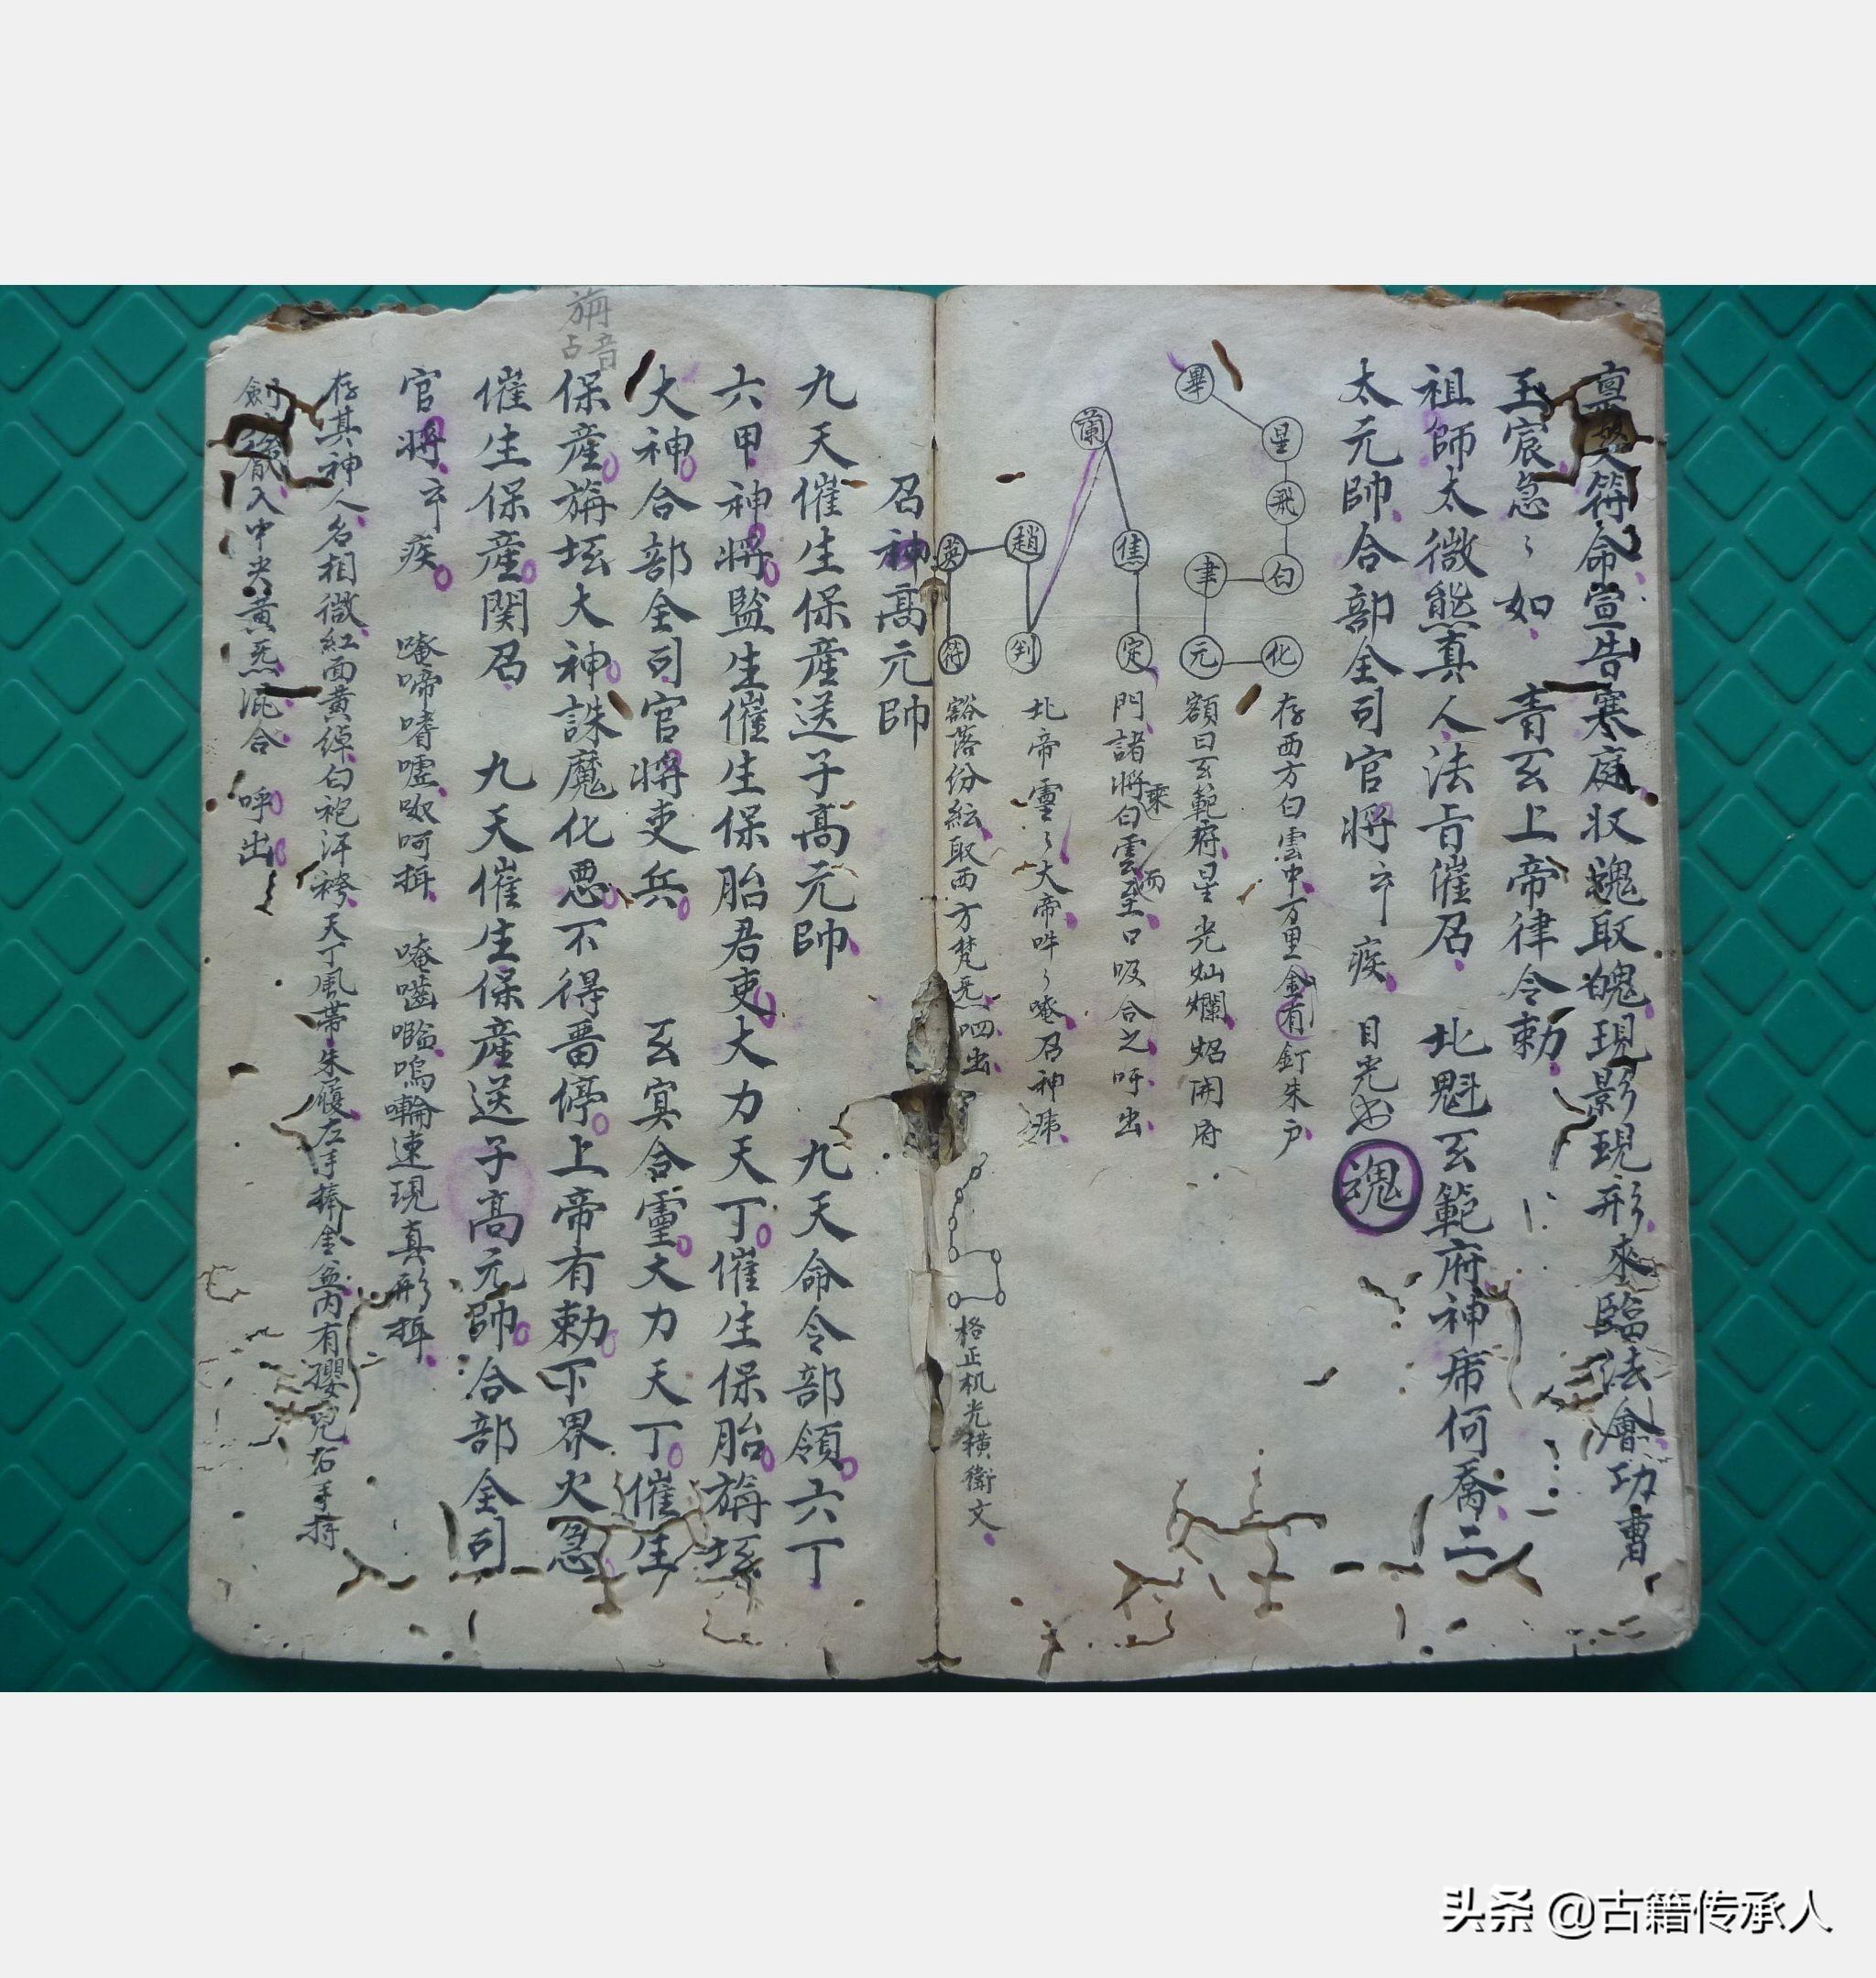 符命宣告寒庭収魂取魄現影現形來臨法會功曹
玉宸急〻如 青玄上帝律令勅
祖師太微熊真人法旨催召 北魁玄範府神席何喬二
太元帥合部全司官將 疾 目光
魂
畢
星
飛
白
聿
元
化
蘭
焦
定
趙
判
英
符
存西方白雲中万里金有釘朱户
額曰玄範府星光灿爛炤開府
門諸將乘白雲而至口吸合之呼出
北帝靈〻大帝吽〻唵召神
豁落份紜取西方梵炁呬出
格正机光横衛文
召神高元帥
九天催生保産送子高元帥 九天命令部領六丁
六甲神將監生催生保胎君吏大力天丁催生保胎旃
大神合部全司官將吏兵 玄寅合靈大力天丁催生
旃音占
保産旃大神誅魔化悪不得畱停上帝有勅下界火急
催生保産関召 九天催生保産送子高元帥合部全司
官將 疾 唵啼嗜嘘呶呵 唵嚙嗚輪速現真形
存其神人名相微紅面黄綽白袍汗袴天丁風帯朱履左手捧金盆内有嬰兒右手持
劍 入中央黄炁混合 呼出
头条 @古籍传承人